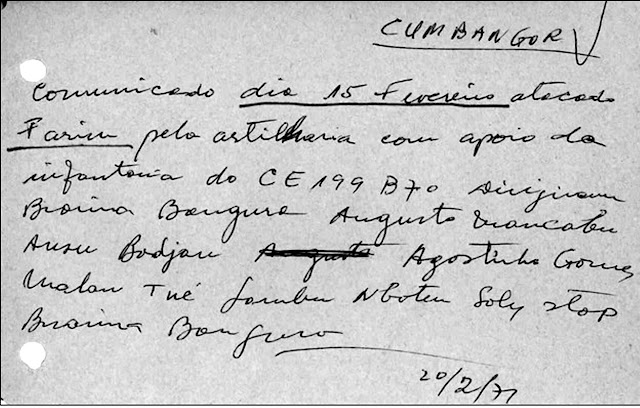 CUMBANGOR
Comunicado dia 15 Fevereiro atacado
Farim pela artilharia com apoio da
infantaria do CE 199 B70 Dirigiram
Braima Bangura Augusto
Ansu Bodjan Augusto Agostinho Gomes
Malan Tué Nboten Soly stop
Braima Bangura
20/2/71